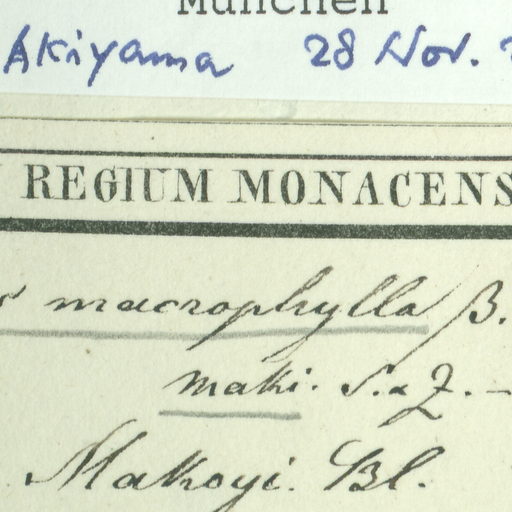 München
Akiyama 28 Nov.
REGIUM MONACENS
macrophylla β.
maki. S. & Z. –
Makoyi. Bl.